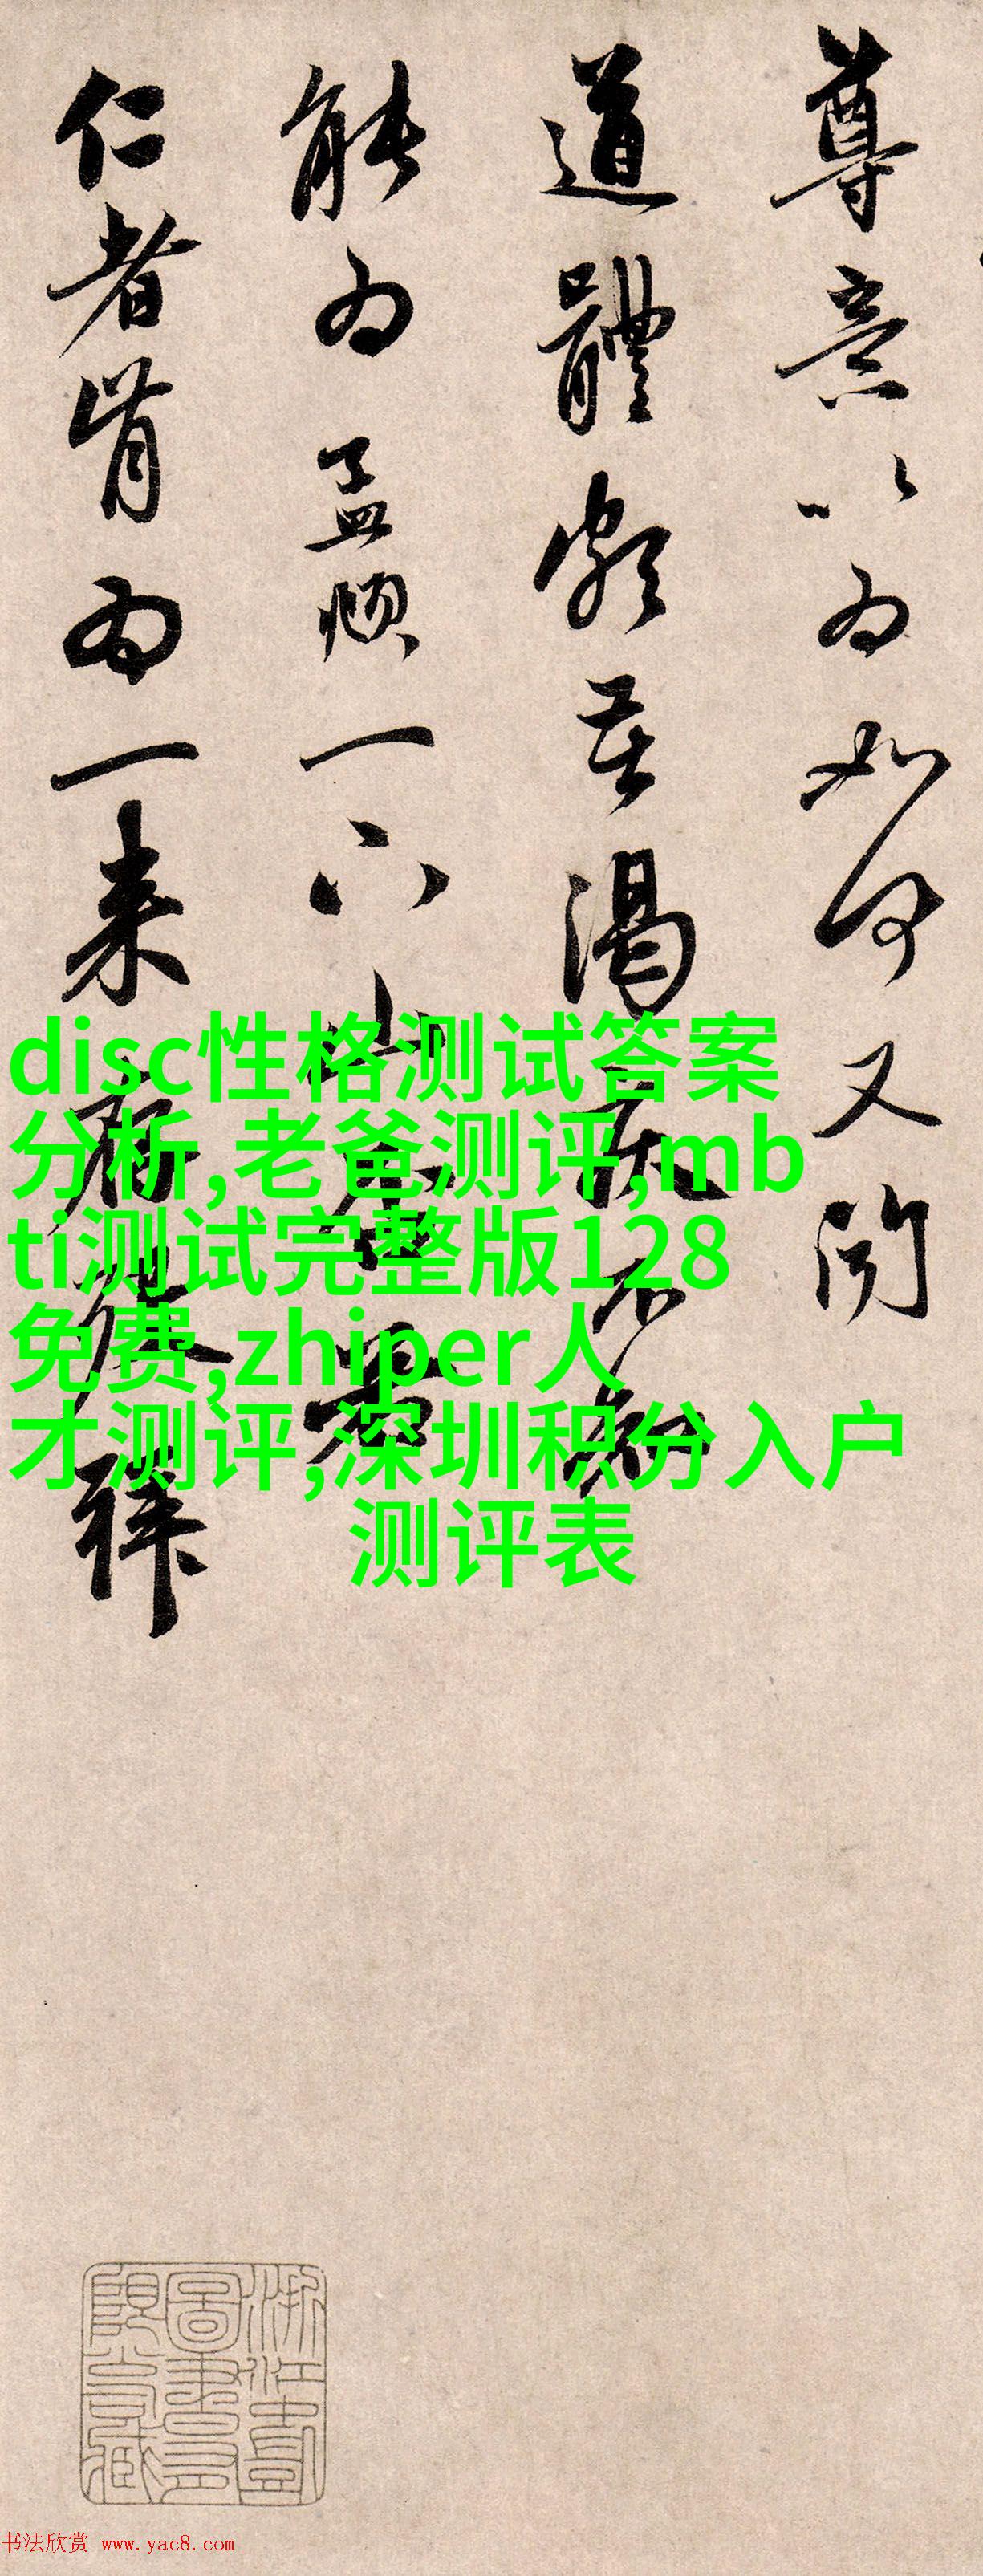 尊意以为如何又闻
道體頗苦渴疾不知
能为孟頫一下山
仁者肯为一来
disc性格测试答案
分析,老爸测评,mb
ti测试完整版128
免费,zhiper人
才测评,深圳积分入户
测评表
书法欣赏 www.yac8.com